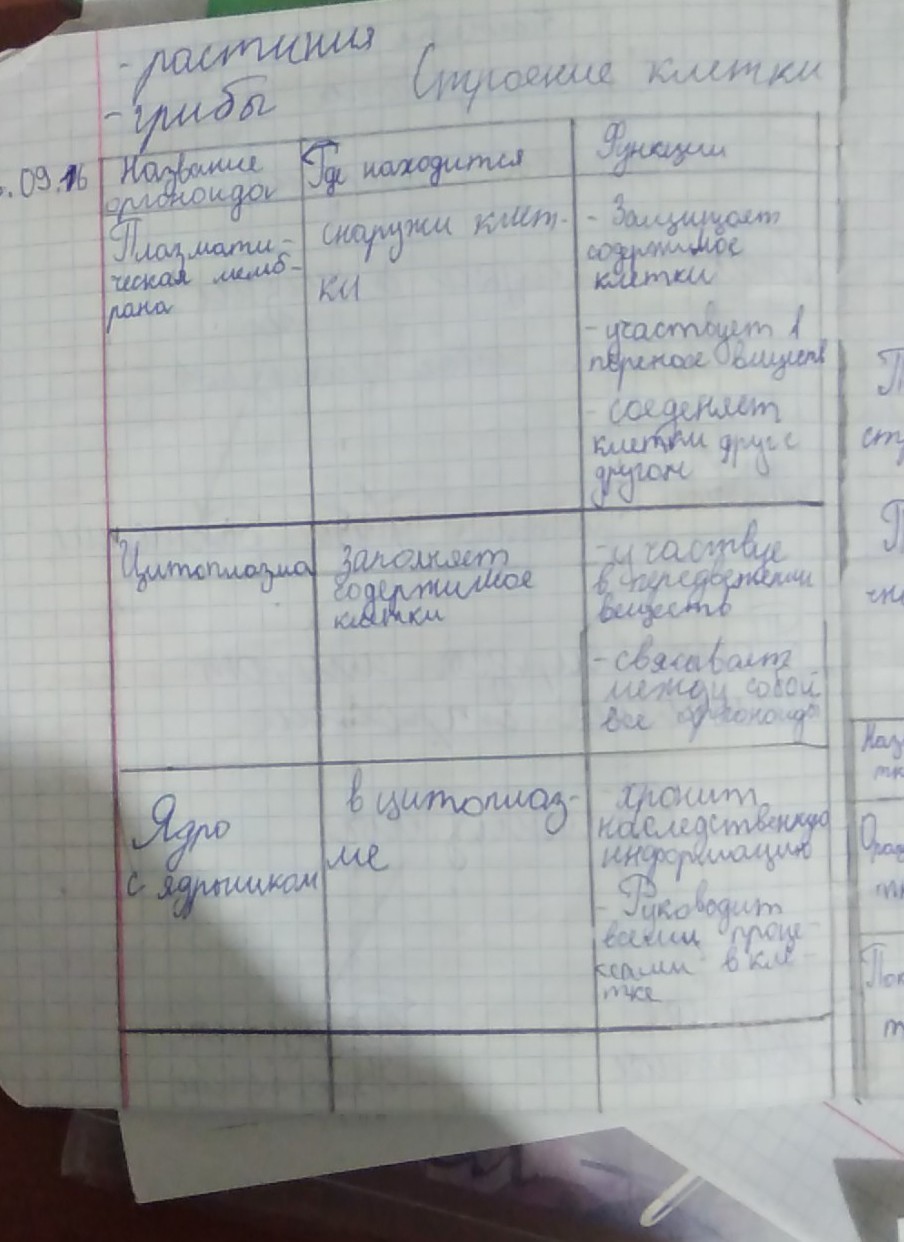 - растиния
- грибы
Строение клетки
.09.16
Название
органоида
Где находится
Функции
Плазмати-
ческая мемб-
рана
снаружи клет-
ки
- Защищает
содержимое
клетки
- участвует в
переносе веществ
- соеденяет
клетки друг с
другом
Цитоплазма
заполняет
содержимое
клетки
- участвуе
в передвежении
веществ
- связывает
между собой
все органоиды
Ядро
с ядрышком
в цитоплаз-
ме
хронит
наследственную
информацию
- Руководит
всеми проце-
ссами в кле-
тке
П
ст
П
Наз
тк
тк
Пок
т